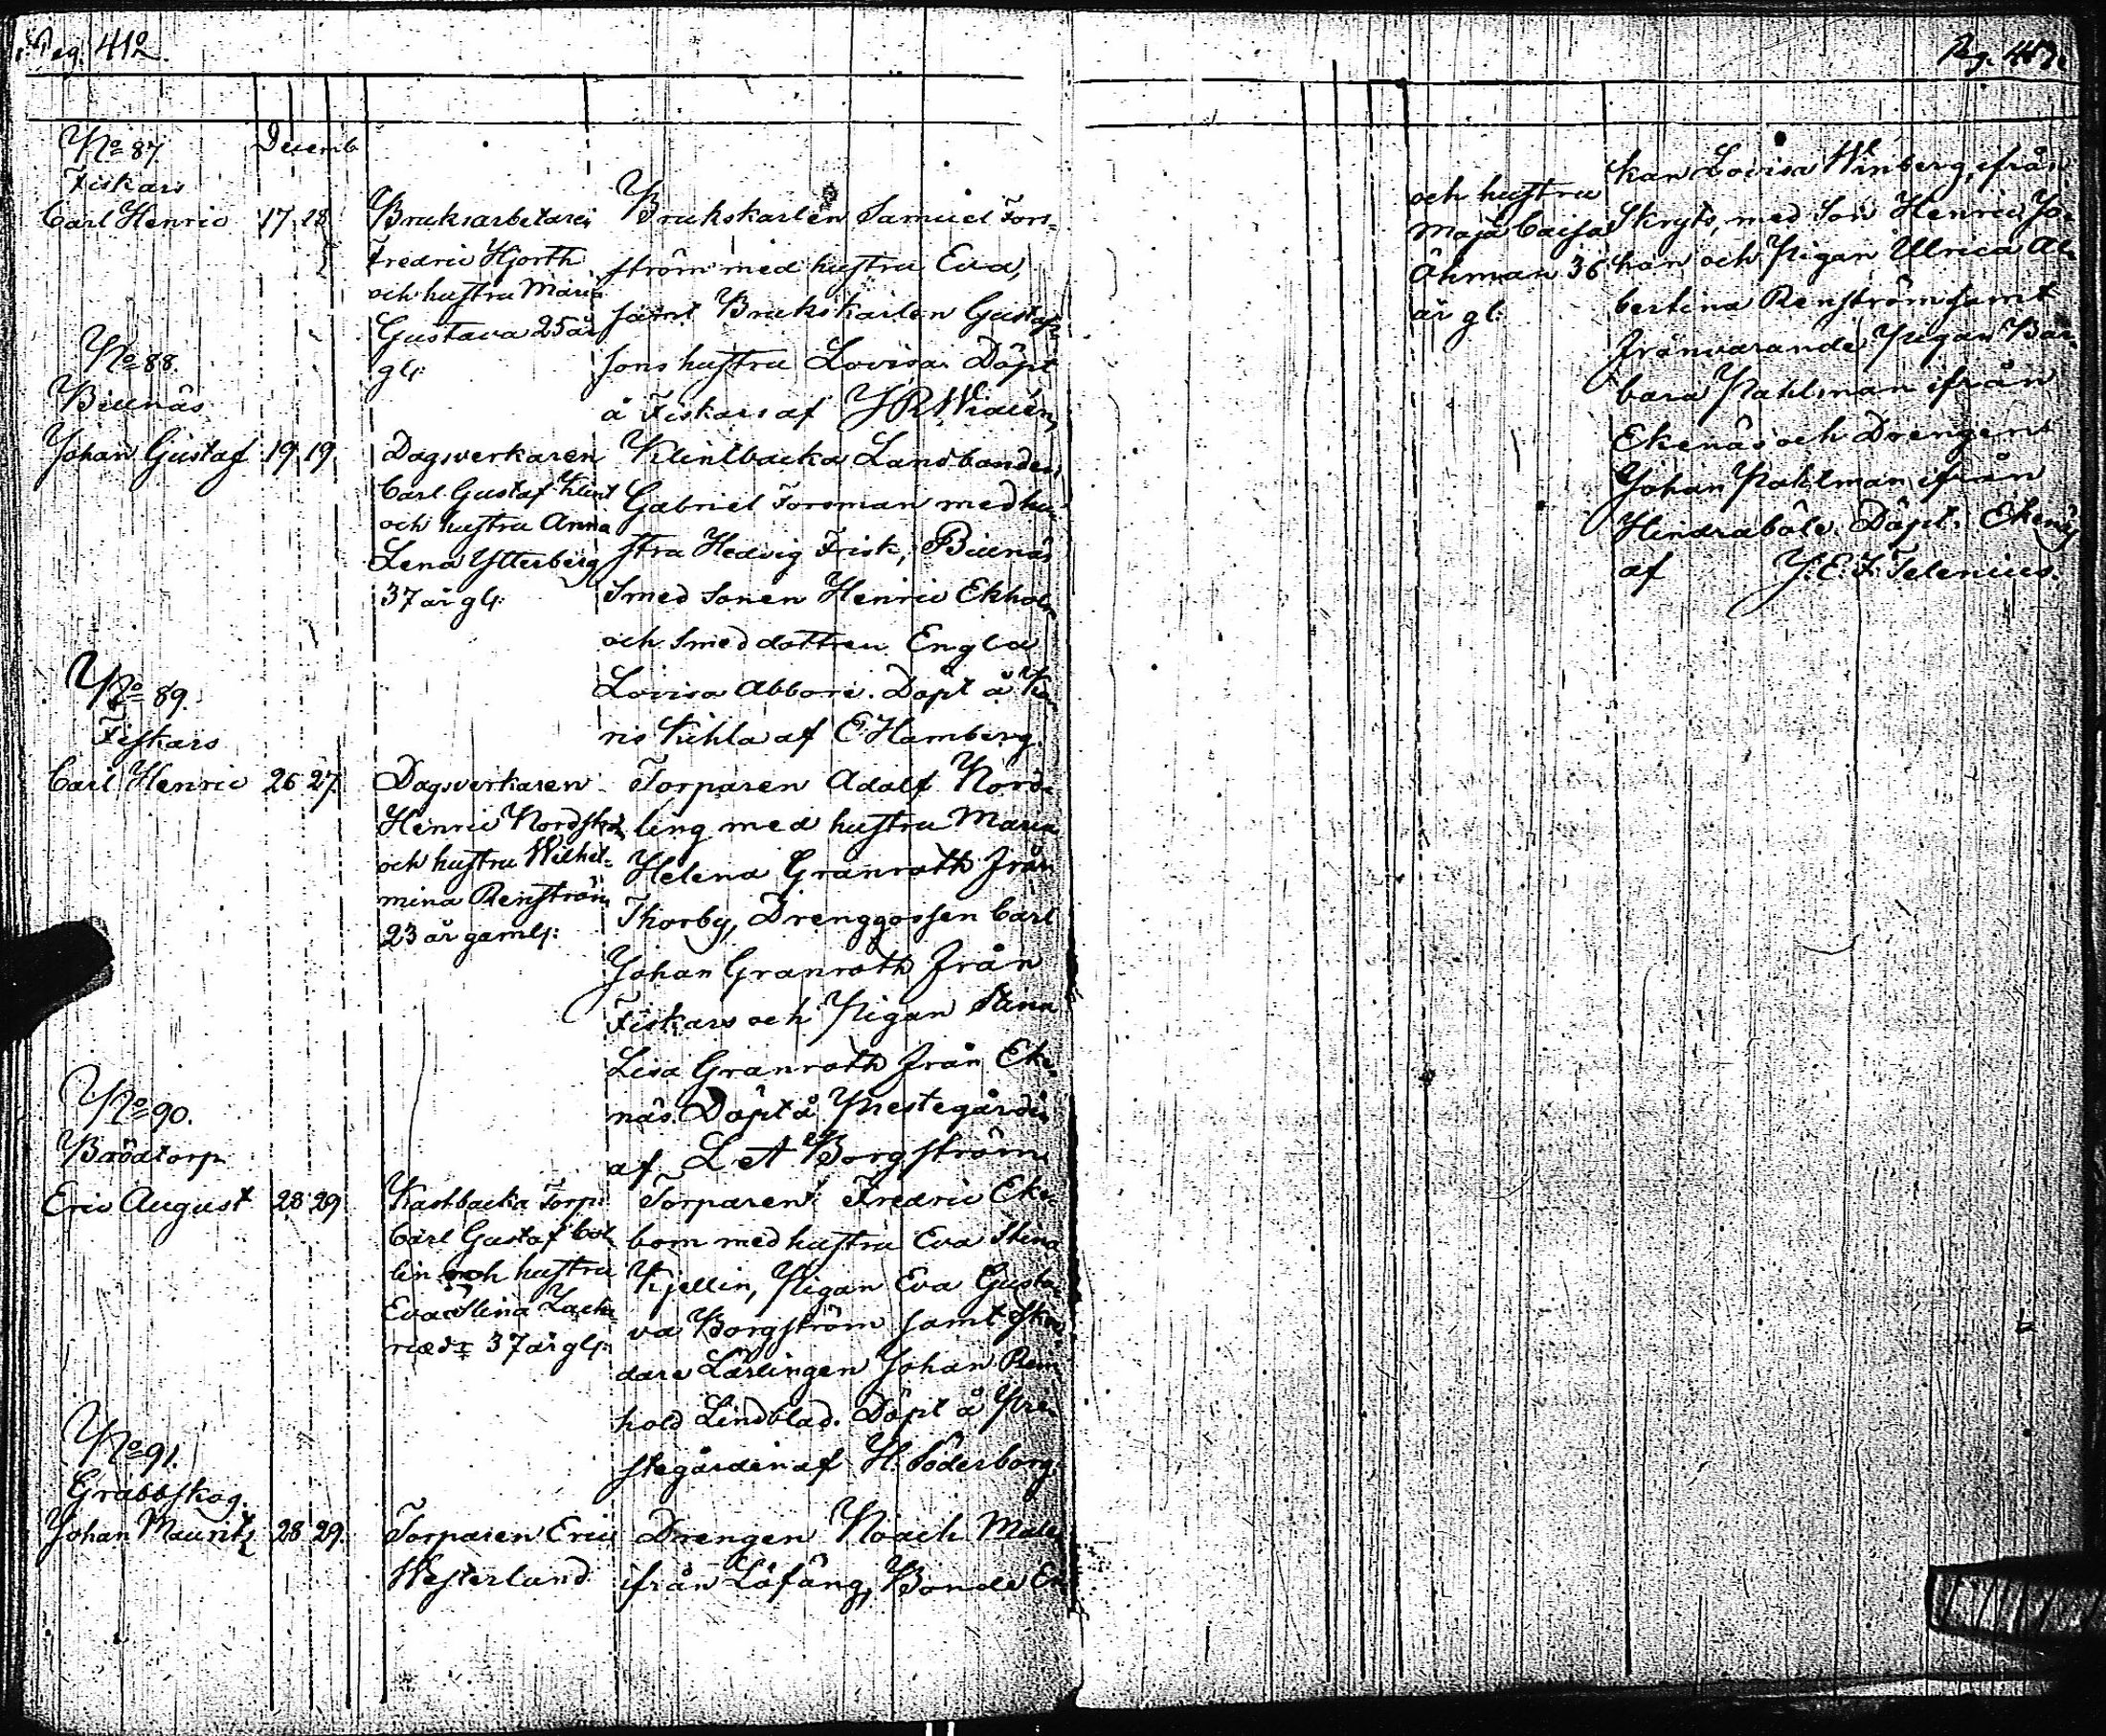 Pag. 412.
No 87.
Decemb
Fiskars
Carl Henric 17 18
Bruksarbetaren
Fredric Hjorth
och hustru Maria
Gustava 25 år
gl:
Brukskarlen Samuel Fors-
ström med hustru Eva,
samt Brukskarlen Gustafs-
sons hustru Lovisa. Döpt
å Fiskars af
No 88.
Billnäs
Johan Gustaf 19 19
Dagsverkaren
Carl Gustaf Klint
och hustru Anna
Lena Ytterberg
37 år gl:
Klintbacka Landbonden
Gabriel Forsman med hu-
stru Hedvig Frisk, Billnäs
Smed Sonen Henric Ekholm
och Smed dottren Engla
Lovisa Abbore. Döpt å Ka-
ris Kihla af E Hamberg.
No 89.
Fiskars
Carl Henric 26 27
Dagsverkaren
Henric
och hustru Wilhel-
mina Renström
23 år gaml:
Torparen Adolf Nord-
ling med hustru Maria
Helena Granroth från
Thorby, Drenggossen Carl
Johan Granroth från
Fiskars och Pigan Stina
Lisa Granroth från Eke-
näs. Döpt å Prestegården
af L A Borgström
No 90.
Brödtorp
Eric August 28 29
Kastbacka Torp:
Carl Gustaf
lin och hustru
Eva Stina Zacha-
riædr 37 år gl:
Torparen Fredric Eke-
bom med hustru Eva Stina
Kjellin, Pigan Eva Gusta-
va Borgström samt Skra-
dare Lärlingen Johan Rein-
hold Lindblad. Döpt å Pre-
stegården af H. Söderborg.
No 91.
Grabbskog.
Johan Mauritz 28 29.
Torparen Eric
Westerlund
Drengen Noach
ifrån Löfång, Bonde
Pag. 413.
och hustru
Maja Caisa
Öhman 36
år gl:
kan Lovisa Winberg, ifrån
Skryts, med Son Henric Jo-
han och Pigan Ulrica Al-
bertina Renström samt
frånvarande Pigan Bar-
bara Pahlman ifrån
Ekenäs och Drengen
Johan Pahlman ifrån
Hindraböle. Döpt i Ekenäs
af J. E. F. Telenius.